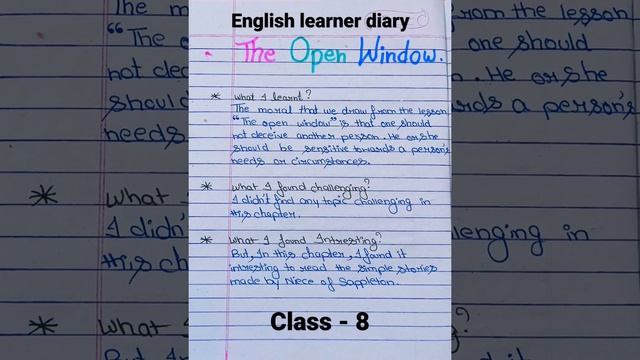 English learner diary
The Open Window.
* What I learnt?
The moral that we draw from the lesson
"The open window" is that one should
not deceive another person. He or she
should be sensitive towards a person's
needs or circumstances.
* What I found challenging?
I didn't find any topic challenging in
this chapter.
* What I found Intresting?
But, In this chapter, I found it
intresting to read the simple stories
made by Niece of Sappleton.
Class - 8